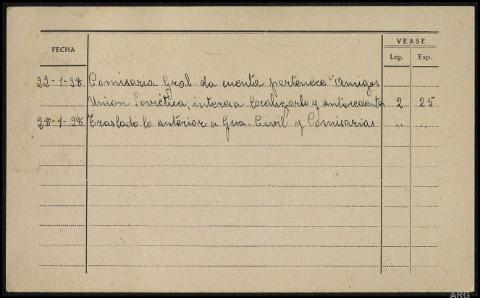 VEASE
FECHA
Leg. Exp.
22-1-38 Comisaria Gral da cuenta pertenece "Amigos
Union Sovietica, interesa localizarlo y antecedentes 2 25
28-1-38 Traslado lo anterior a Gua Civil y Comisarias " "
ARG